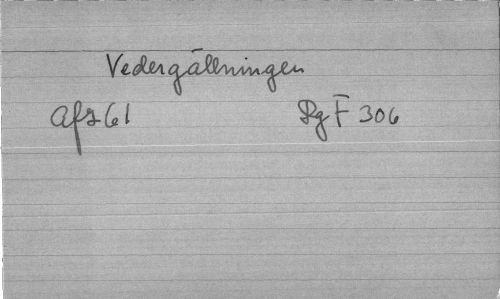 Vedergällningen
Afs 61 Sg F 306